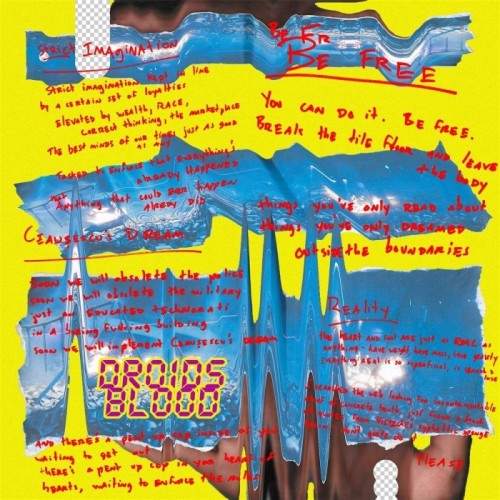 Strict IMAGINATION
Strict imagination kept in line
by a certain set of loyalties
Elevated by wealth, RACE,
CORRECT thinking, the marketplace
The best minds of our times just as good
as any
Tasked to Enforce that Everything's
already HAPPENED
Anything that could EVER happen
Already Did
Ceaușescu's DREAM
soon we will obsolete the police
soon we will obsolete the military
just an EDUCATED technorati
in a boring fucking building
soon we will implement Ceaușescu's DREAM
DROIDS
BLOOD
AND thERE'S A pent up cop inside of you
waiting to get out
thERE'S A pent up cop in your heart of
hearts, waiting to enforce the rules
BE FR
BE FREE
You CAN do it. BE FREE.
BREAK the tile floor AND leave
the body
things you've only READ about
things you've only DREAMED
outside the boundaries
Reality
the HEART and soul ARE just as REAL as
anything - have weight have mass, have gravity
Everything REAL is so
I searched the web looking for
of concrete truth, just found a
from synthetic sponge
PLEASE